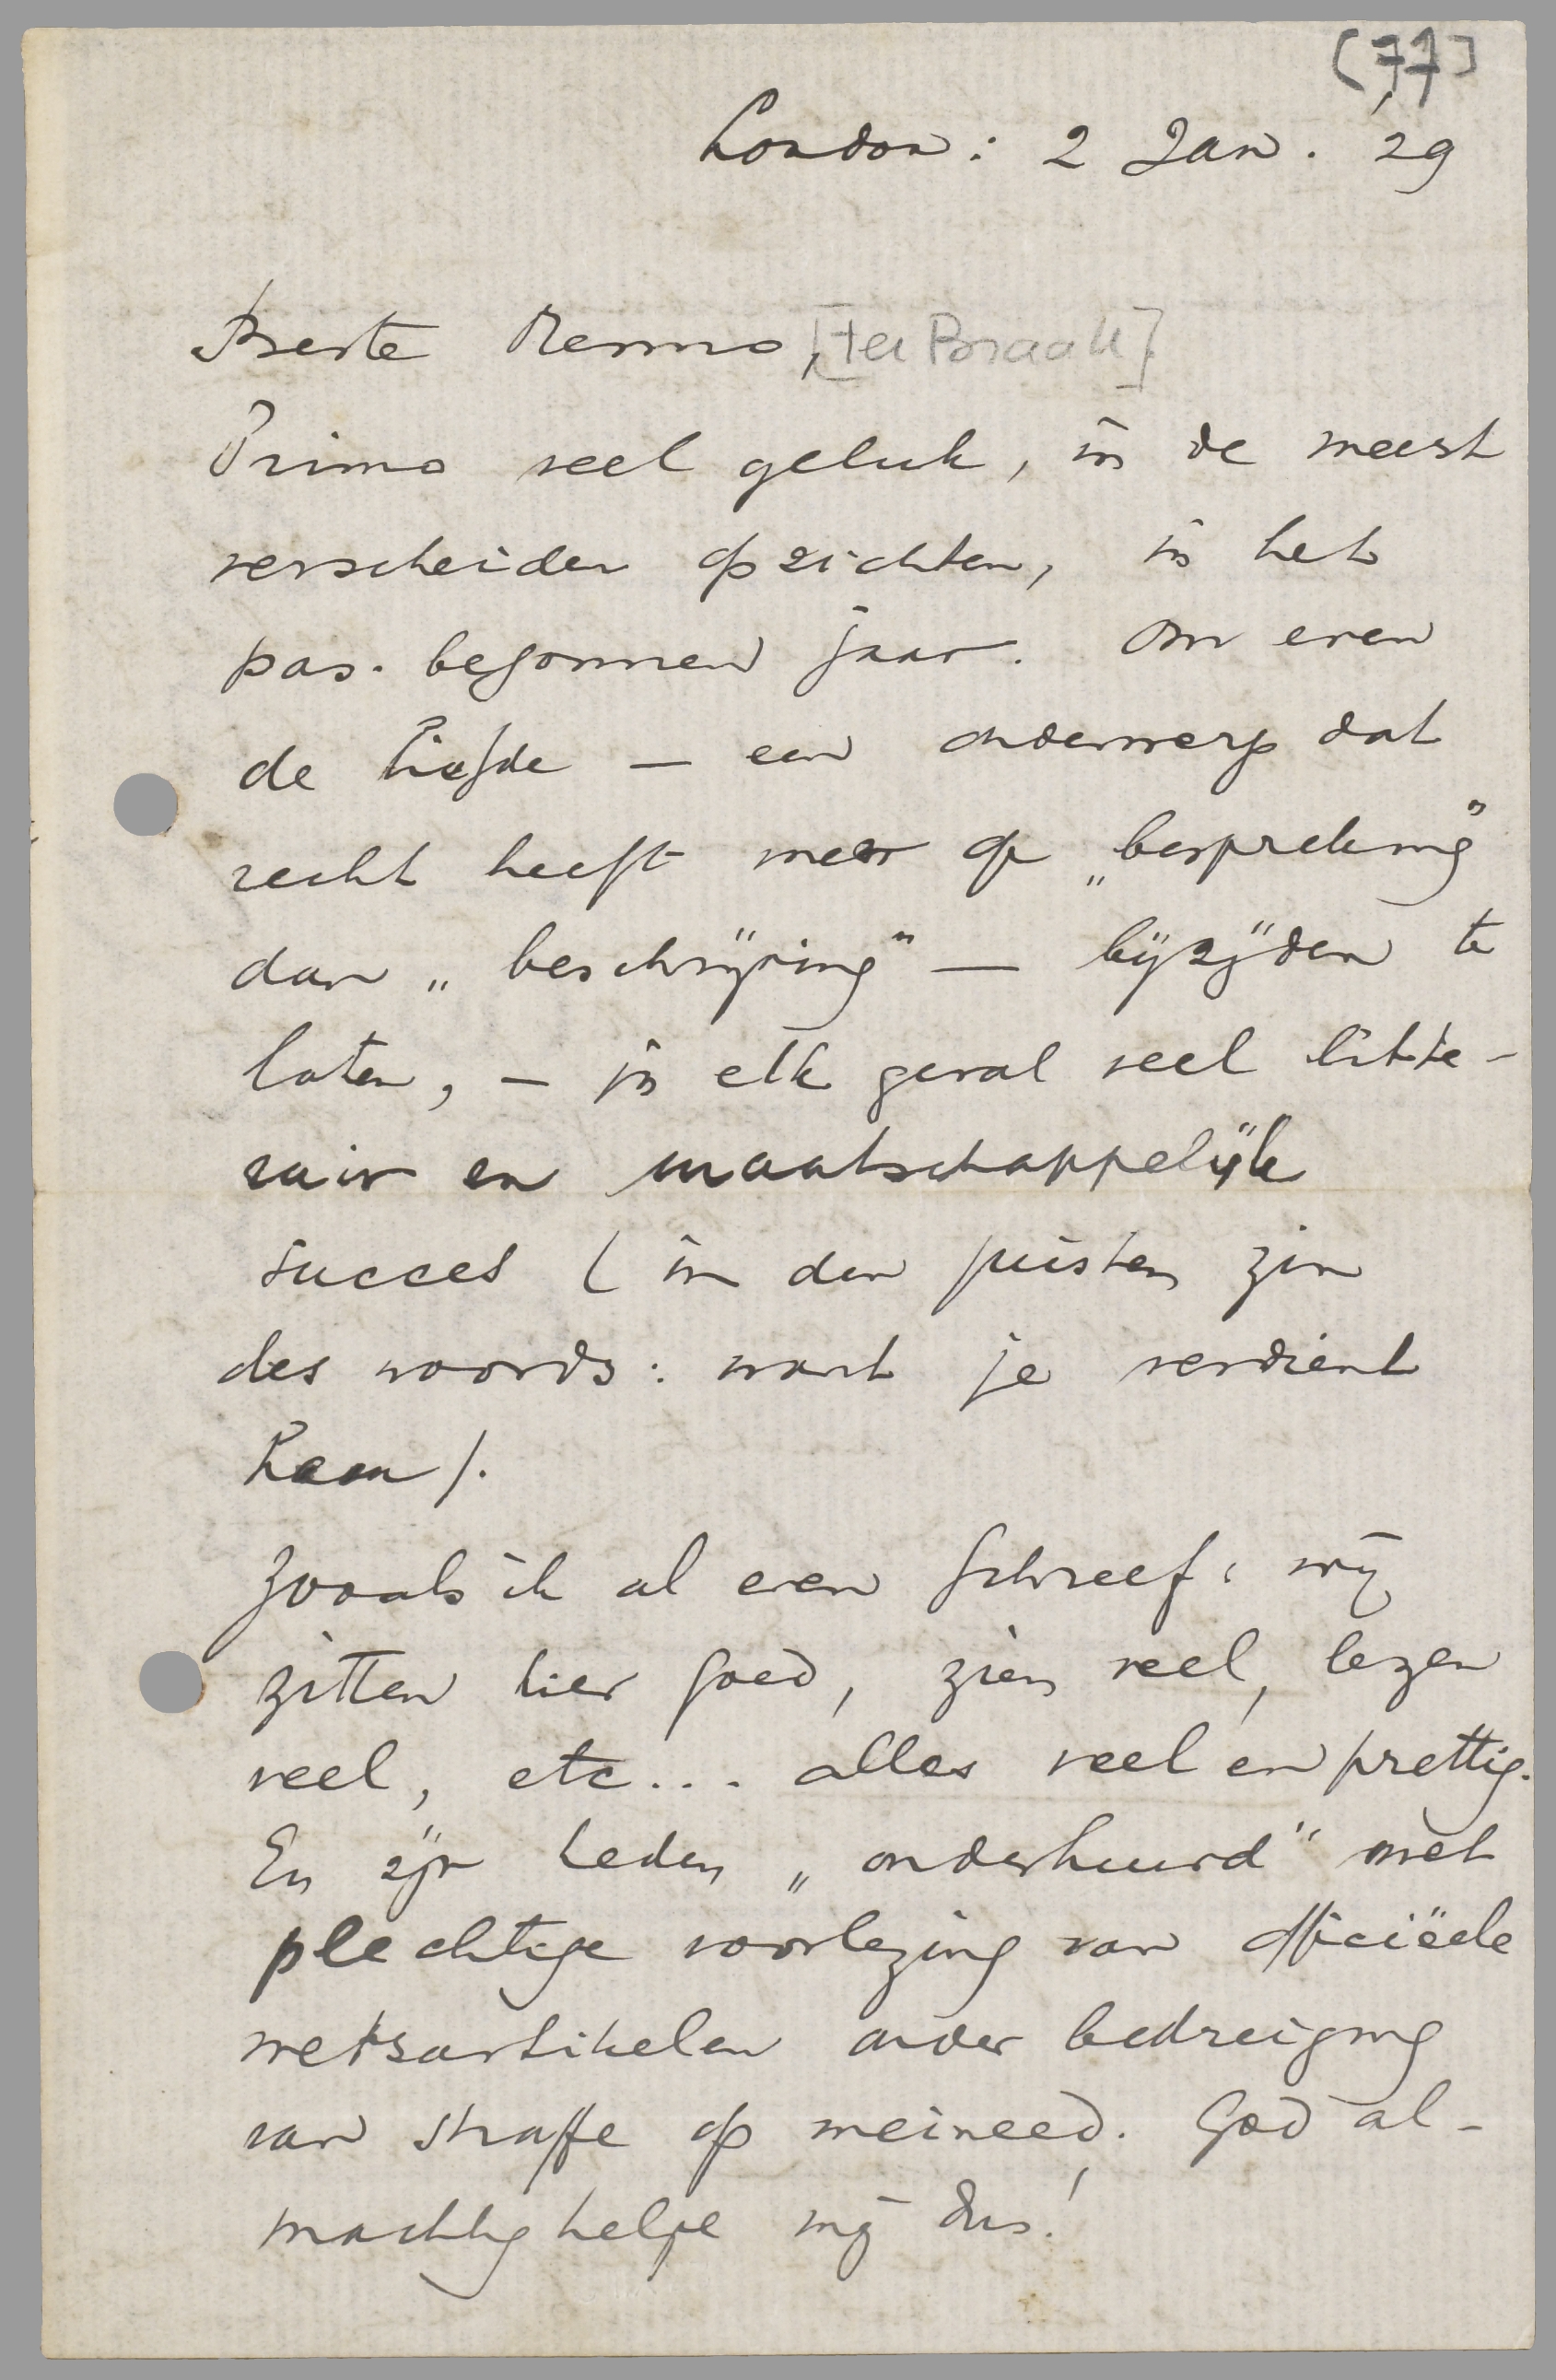 [77]
London: 2 Jan. '29
Beste Menno, [ter Braak]
Primo veel geluk, in de meest
verscheiden opzichten, in het
pas-begonnen jaar. Om even
de liefde — een onderwerp dat
recht heeft meer op „bespreking”
dan „beschrijving” — bijzijden te
laten, — in elk geval veel litte-
rair en maatschappelijk
succes (in den juisten zin
des woords: want je verdient
hem).
Zooals ik al even schreef: wij
zitten hier goed, zien veel, lezen
veel, etc... alles veel en prettig.
En zijn heden „onderhuurd” met
plechtige voorlezing van officiëele
wetsartikelen onder bedreiging
van straffe op meineed. God al-
machtig helpe mij dus!